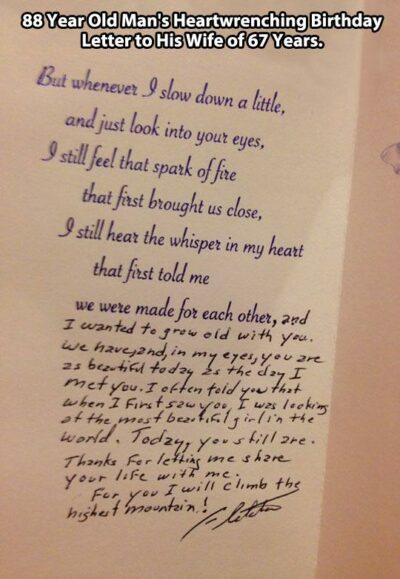 88 Year Old Man's Heartwrenching Birthday
Letter to His Wife of 67 Years.
But whenever I slow down a little,
and just look into your eyes,
I still feel that spark of fire
that first brought us close,
I still hear the whisper in my heart
that first told me
we were made for each other, and
I wanted to grow old with you.
We have, and, in my eyes, you are
as beautiful today as the day I
met you. I often told you that
when I first saw you, I was looking
at the most beautiful girl in the
world. Today, you still are.
Thanks for letting me share
your life with me.
For you I will climb the
highest mountain!